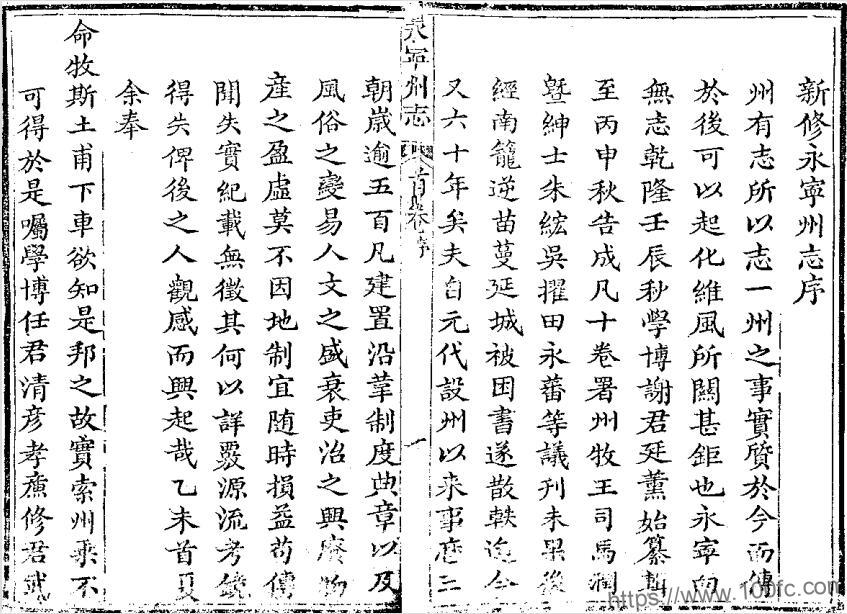 新修永寧州志序
州有志所以志一州之事實質於今而傳
於後可以起化維風所關甚鉅也永寧向
無志乾隆壬辰秋學博謝君廷薰始纂輯
至丙申秋告成凡十卷署州牧王司馬潤
暨紳士朱紘吳擢田永蕃等議刊未果後
經南籠逆苗蔓延城被困書遂散軼迄今
又六十年矣夫自元代設州以来事歷三
永寧州志 首卷 序 一
朝歲逾五百凡建置沿革制度典章以及
風俗之變易人文之盛衰吏治之興廢物
產之盈虛莫不因地制宜随時損益苟傳
聞失實紀載無徵其何以詳覈源流考鏡
得失俾後之人觀感而興起哉乙未首夏
余奉
命牧斯土甫下車欲知是邦之故實索州乗不
可得於是囑學博任君清彦孝廉修君武
https://www.100fc.com